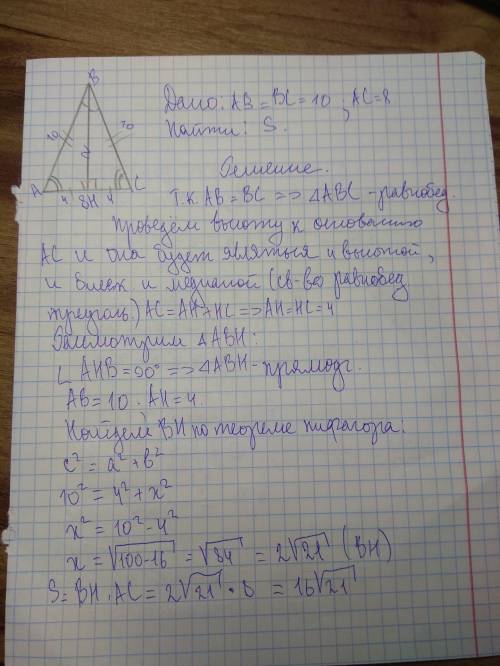 B
Дано: AB = BC = 10, AC = 8
Найти: S.
10
10
A
C
4 8H 4
Решение.
Т.к. AB = BC => △ABC - равнобед.
Проведём высоту к основанию
AC и она будет являться и высотой,
и бисек и медианой (св-во равнобед
треуголь.) AC = AH + HC => AH = HC = 4
Рассмотрим △ABH:
∠AHB = 90° => △ABH - прямоуг.
AB = 10. AH = 4
Найдём BH по теореме пифагора:
c² = a² + b²
10² = 4² + x²
x² = 10² - 4²
x = √100-16 = √84 = 2√21 (BH)
S = BH · AC = 2√21 · 8 = 16√21